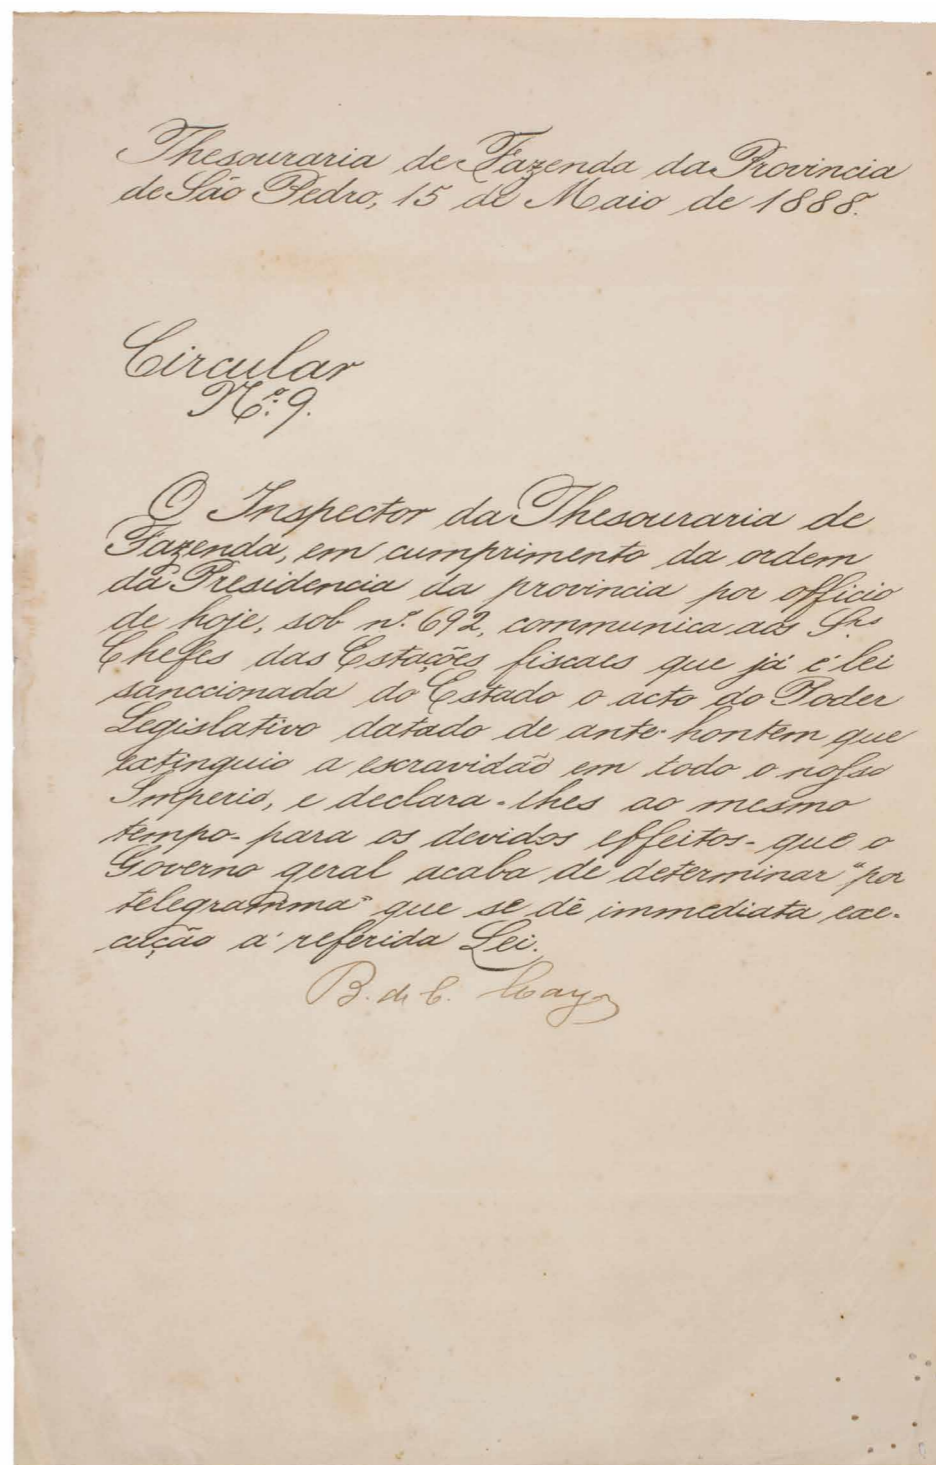 Thesouraria de Fazenda da Provincia
de São Pedro, 15 de Maio de 1888.
Circular
N.º 9.
O Inspector da Thesouraria de
Fazenda, em cumprimento da ordem
da Presidencia da provincia por officio
de hoje, sob n.º 692, communica aos Snrs
Chefes das Estações fiscaes que já é lei
sanccionada do Estado o acto do Poder
Legislativo datado de ante-hontem que
extinguio a escravidão em todo o nosso
Imperio, e declara-lhes ao mesmo
tempo-para os devidos effeitos-que o
Governo geral acaba de determinar "por
telegramma" que se dê immediata exe-
cução á referida Lei.
B. de C.